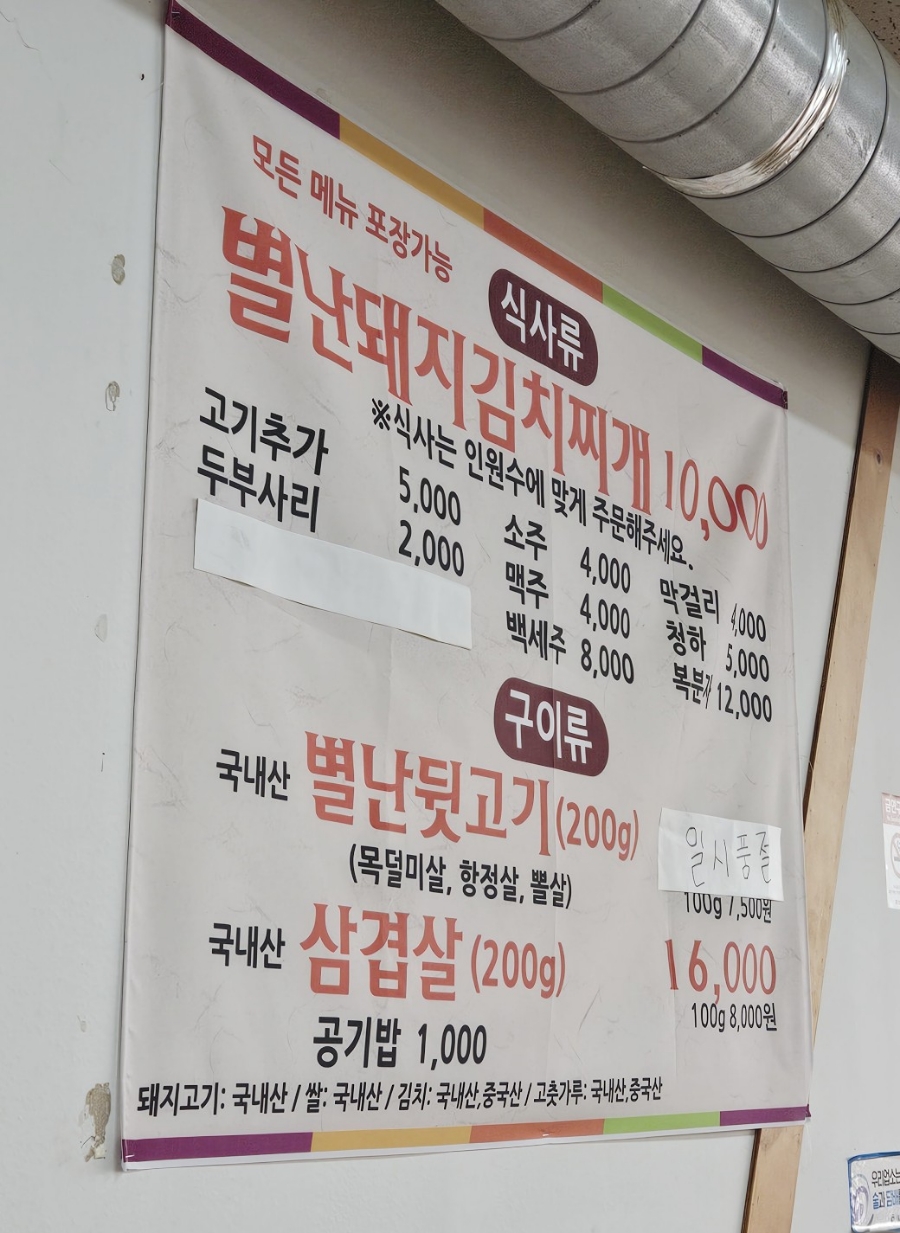 모든 메뉴 포장가능
식사류
별난돼지김치찌개 10,000
※식사는 인원수에 맞게 주문해주세요.
고기추가 5,000
두부사리 2,000
소주 4,000
맥주 4,000
백세주 8,000
막걸리 4,000
청하 5,000
복분자 12,000
구이류
국내산 별난뒷고기(200g) 일시품절
(목덜미살, 항정살, 뽈살) 100g 7,500원
국내산 삼겹살 (200g) 16,000
100g 8,000원
공기밥 1,000
돼지고기: 국내산 / 쌀: 국내산 / 김치: 국내산,중국산 / 고춧가루: 국내산,중국산
우리업소는